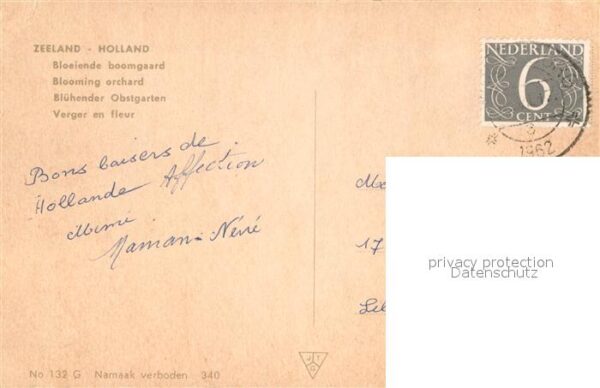 ZEELAND - HOLLAND
Bloeiende boomgaard
Blooming orchard
Blühender Obstgarten
Verger en fleur
NEDERLAND
6
CENT
1962
Bons baisers de
Hollande Affection
Mimi
Maman-Néné
17
privacy protection
Datenschutz
No 132 G Namaak verboden 340